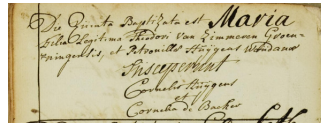 Die Quinta Baptizata est Maria
Filia Legitima Theodori van Zimmeren Groen-
ningensis, et Petronillæ Huÿgens Wondauw
Susceperunt
Cornelis Huÿgens
et
Cornelia de Backer